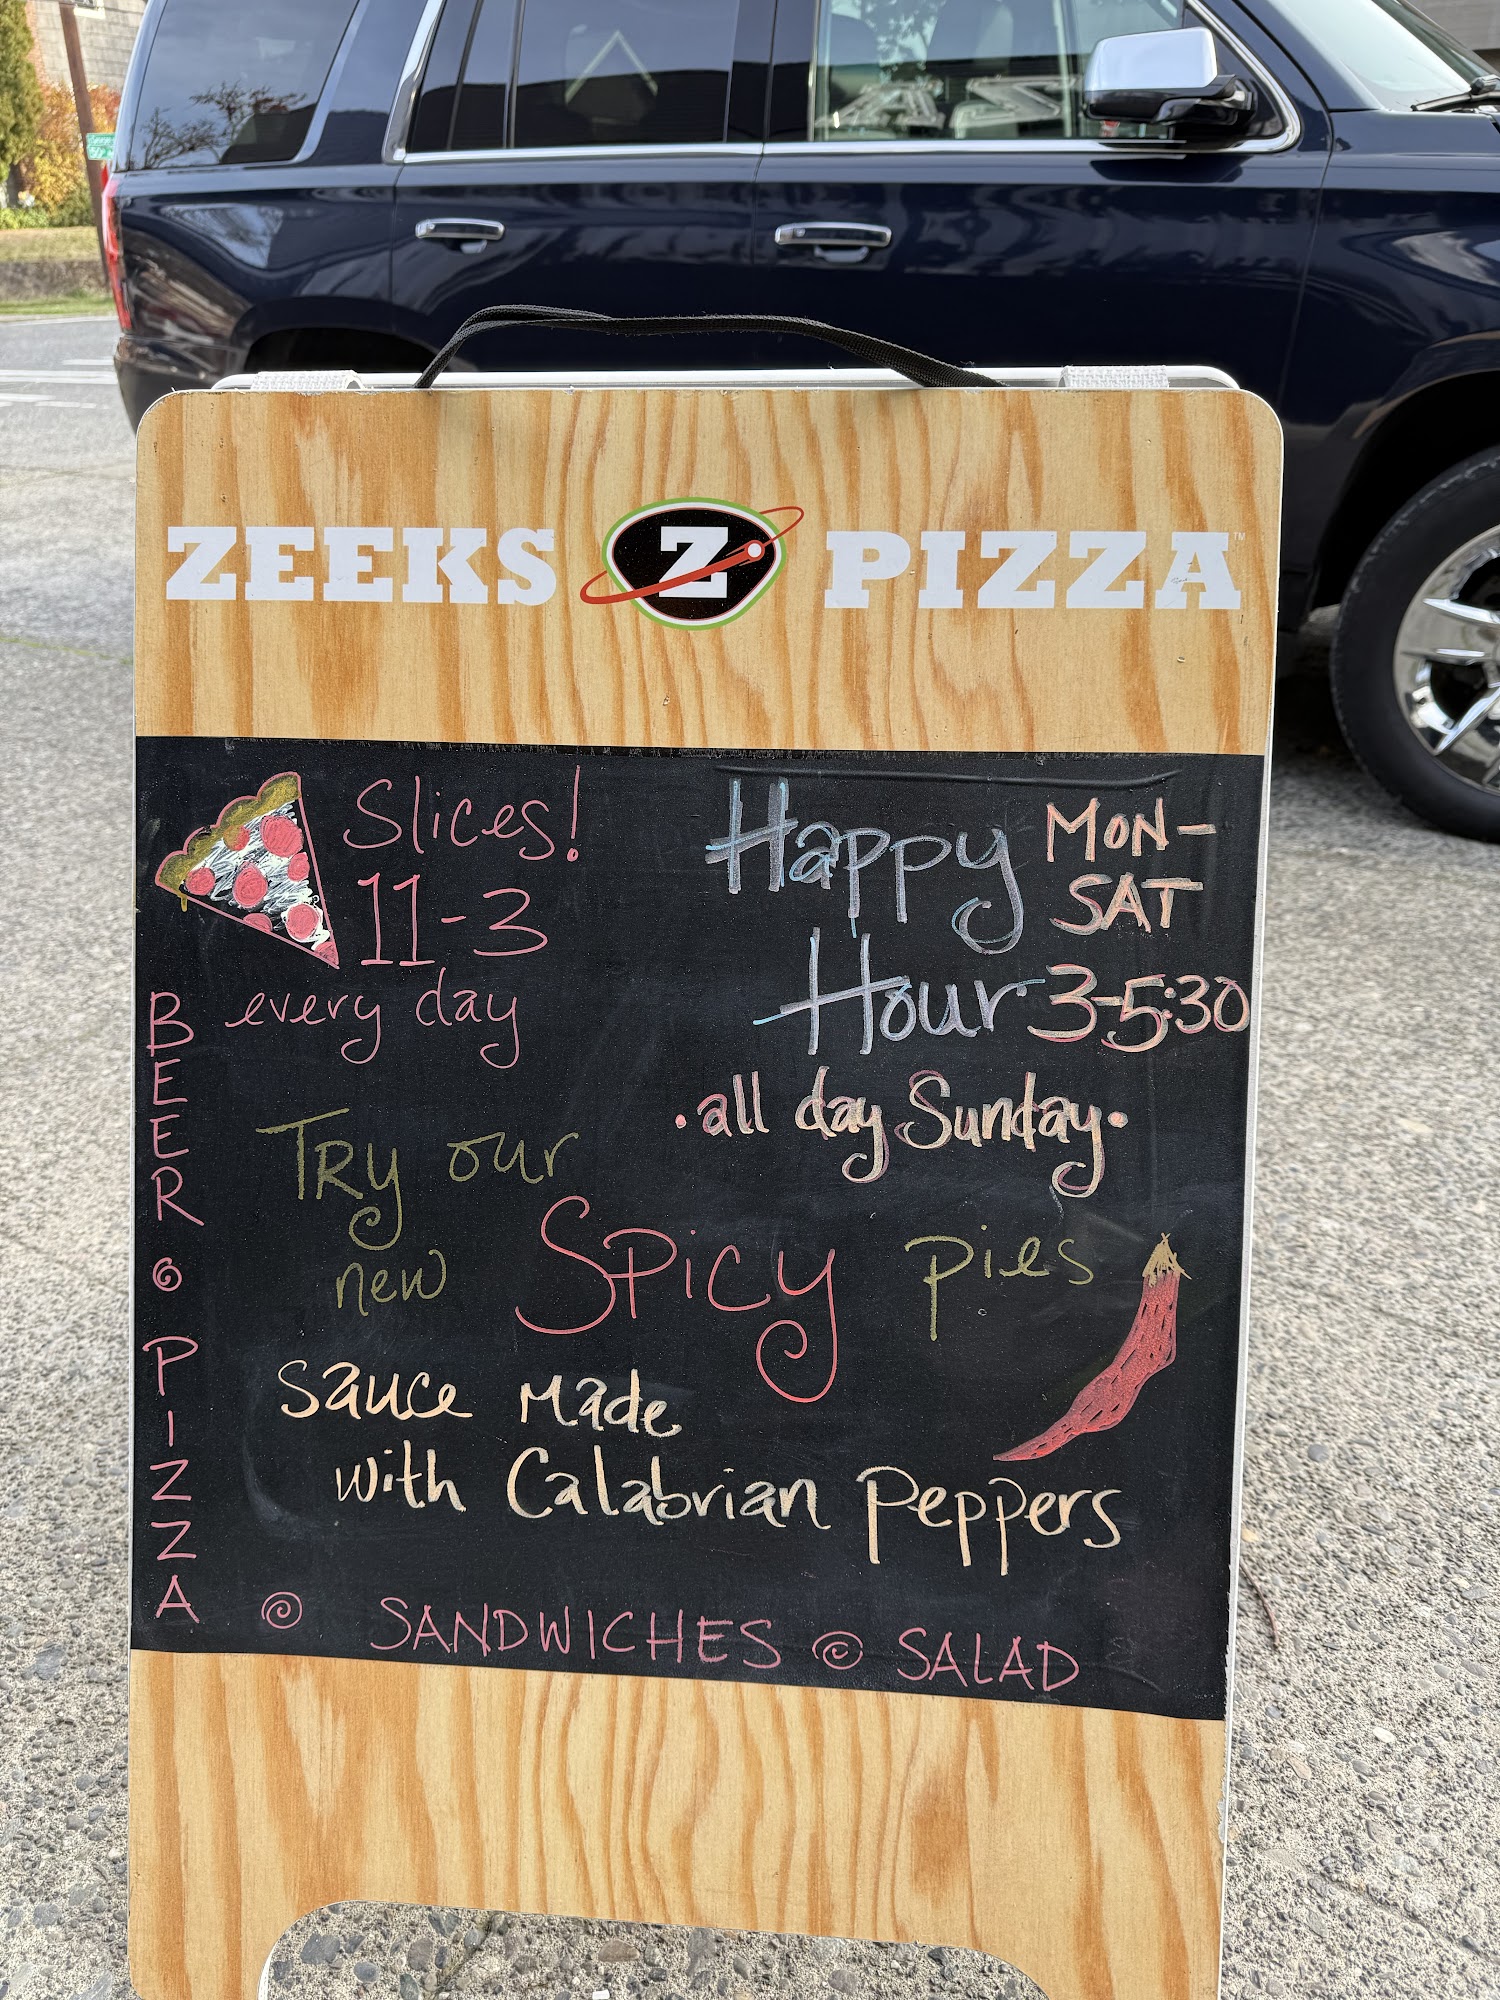 ZEEKS Z PIZZA™
Slices!
11-3
every day
Happy MON-
SAT
Hour 3-5:30
·all day Sunday·
Try our
new Spicy pies
Sauce Made
with Calabrian Peppers
BEER PIZZA
SANDWICHES SALAD